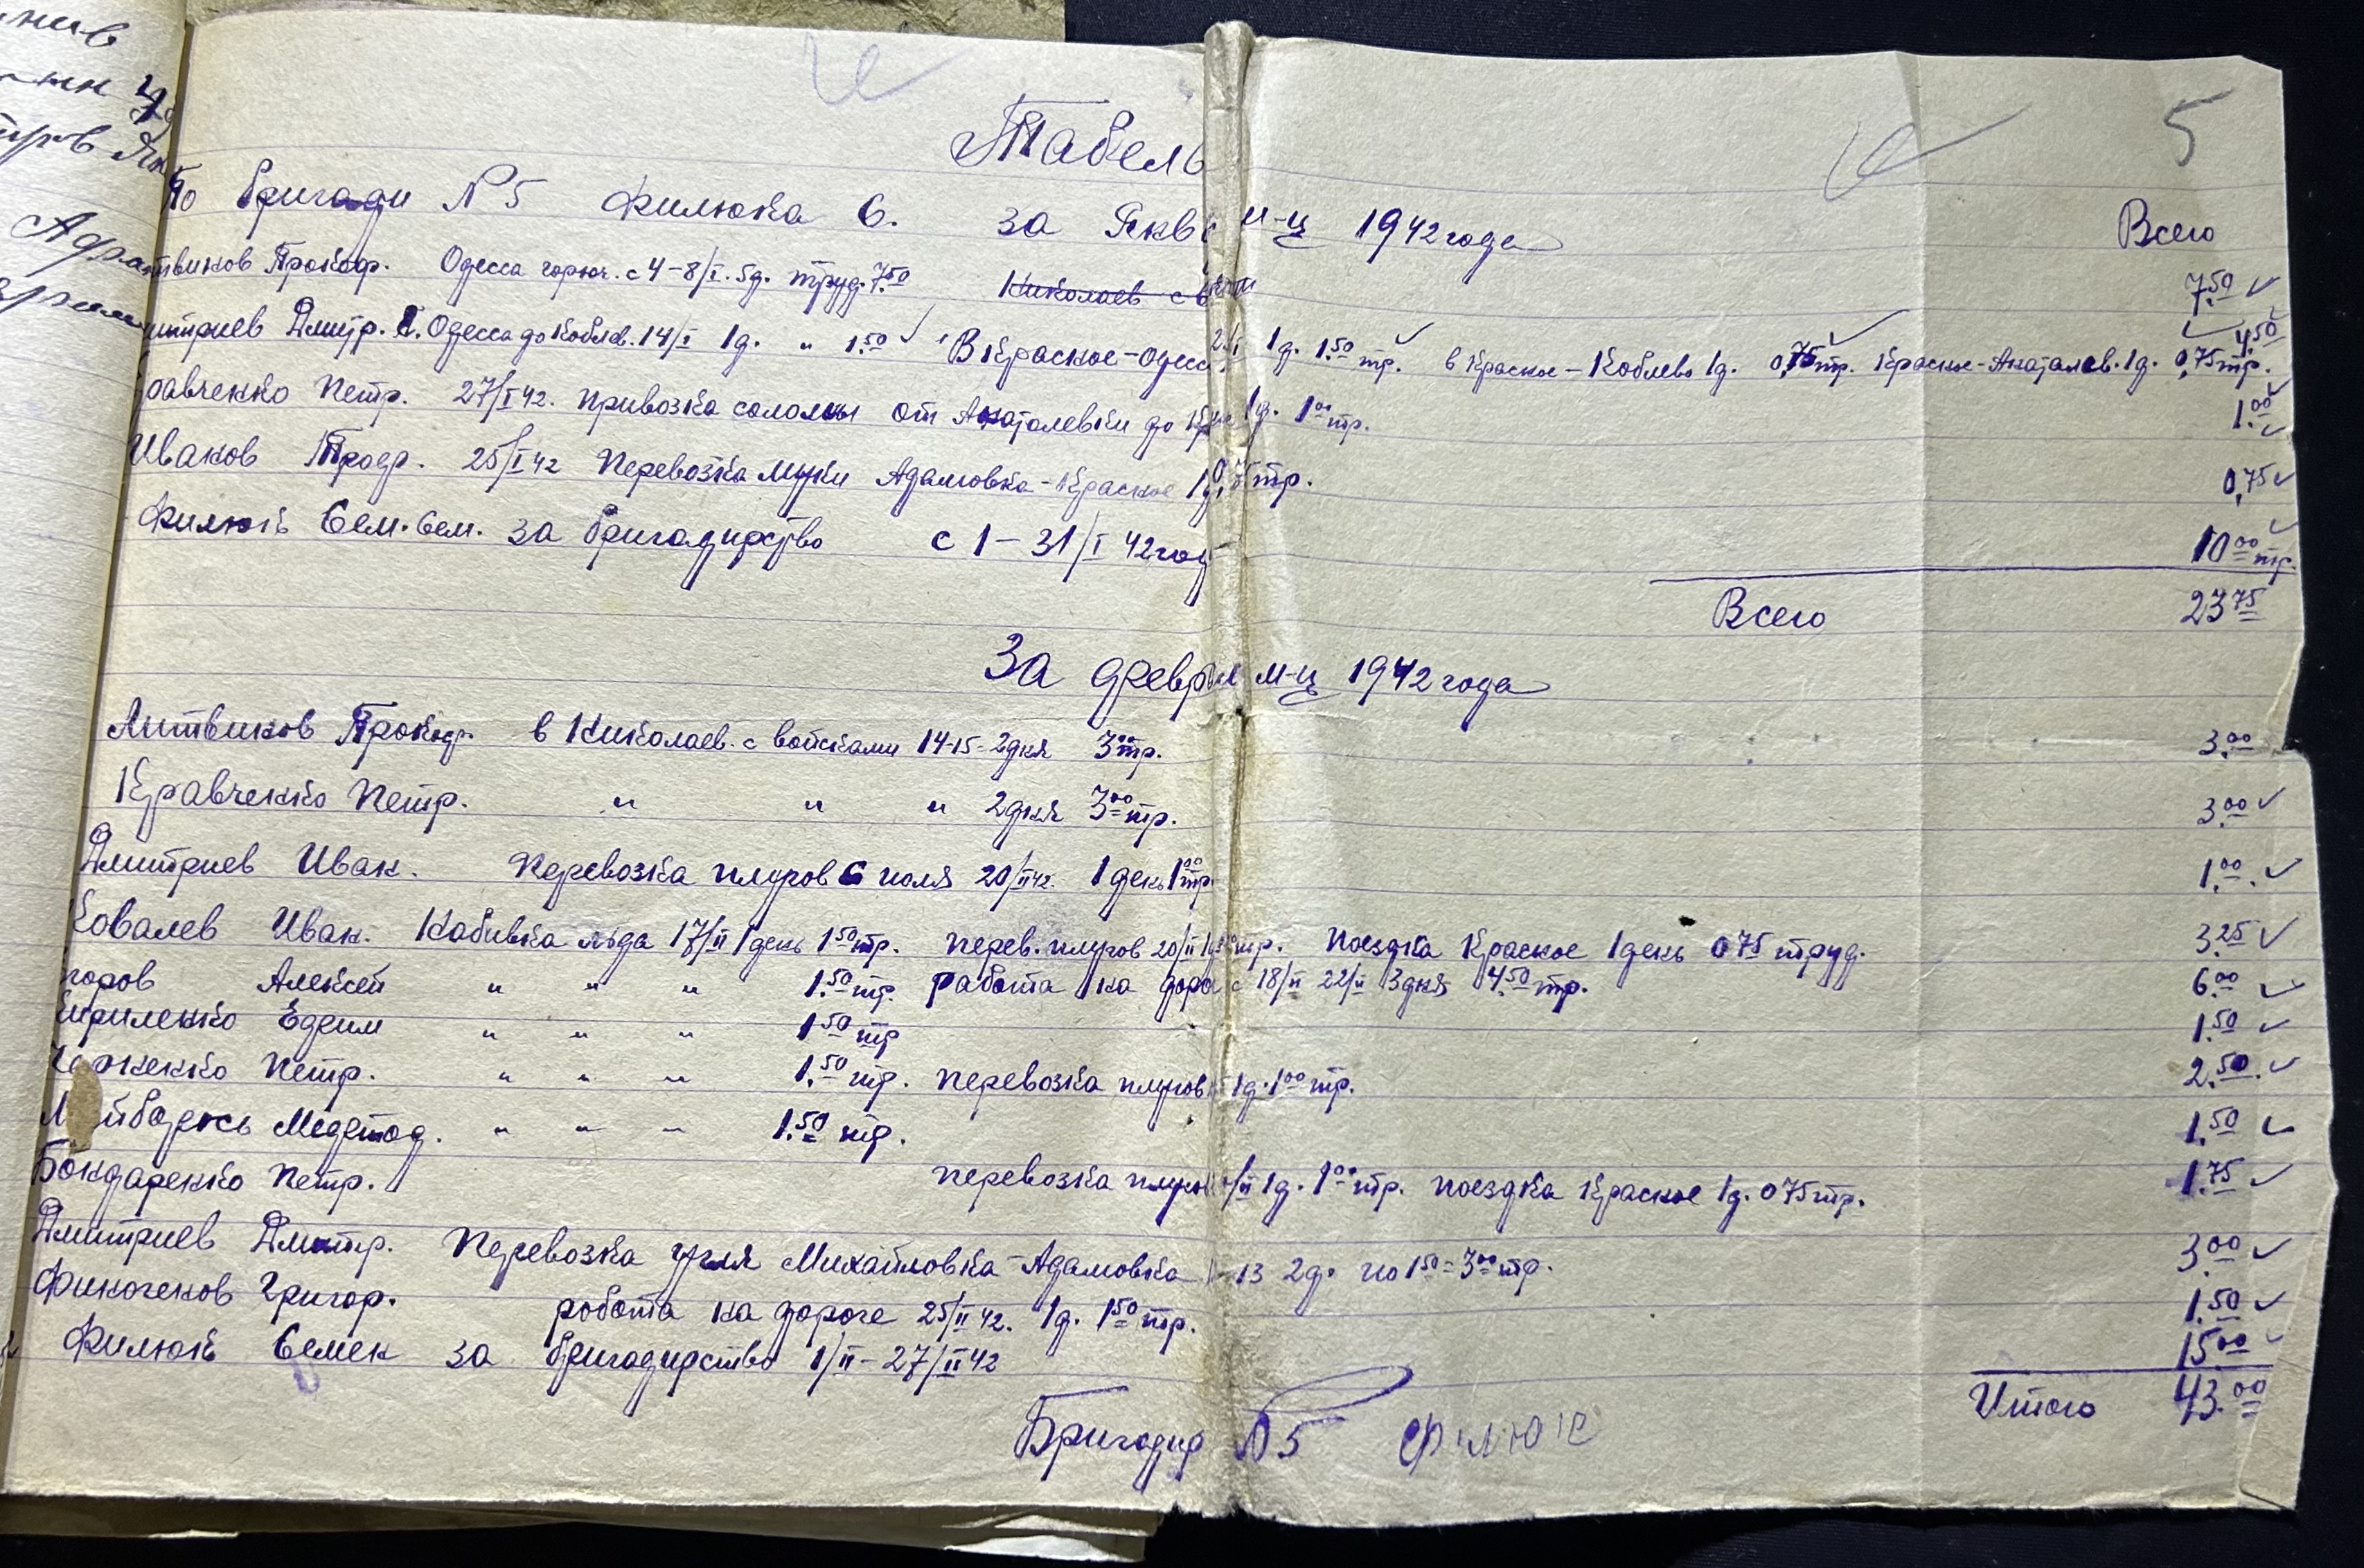 5
Табель
По бригади №5 Филюка С. за Янв м-ц 1942 года Всего
твинов Прокоф. Одесса горюч. с 4-8/I. 5д. труд. 7.50 Николаев с в 7.50
митриев Дмитр. Одесса до Коблев. 14/I 1д. " 1.50 В Красное-Одесс 1д. 1.50 тр. в Красное-Коблево 1д. 0,75тр. Красное-Анатолев. 1д. 0,75тр. 4.50
равченко Петр. 27/I 42. привозка соломы от Анатолевки до Кра 1д. 1 00 тр. 1.00
Иванов Троф. 25/I 42 Перевозка муки Адамовка-Красное 1д. 0,75 тр. 0,75
Филюк Сем. Сем. за бригадирство с 1-31/I 42 год 10 00 тр.
Всего 23 75
За февра м-ц 1942 года
Литвинов Прокоф. в Николаев. с войсками 14-15-2дня 3 00 тр. 3.00
Кравченко Петр. " " " 2дня 3 00 тр. 3.00
Дмитриев Иван. Перевозка плугов с поля 20/II 42. 1 день 1 00 тр. 1.00.
Ковалев Иван. Набивка льда 17/II 1день 1 50 тр. перев. плугов 20/II тр. Поездка Красное 1день 0 75 труд. 3.25
горов Алексей " " " 1.50 тр. работа на доро с 18/II 22/II 3дня 4.50 тр. 6.00
Кириленко Ефрим " " " 1 50 тр 1.50
Черненко Петр. " " " 1.50 тр. перевозка плугов 1д. 1 00 тр. 2.50.
йборось Мефтод. " " " 1.50 тр. 1.50
Бондаренко Петр. перевозка плугов /II 1д. 1 00 тр. поездка Красное 1д. 0 75 тр. 1.75
Дмитриев Дмитр. Перевозка угля Михайловка-Адамовка 13 2д. по 1 50 = 3 00 тр. 3.00
Финогенов Григор. робота на дороге 25/II 42. 1д. 1 50 тр. 1.50
Филюк Семен за бригадирство 1/II-27/II 42 15 00
Итого 43.00
Бригадир №5 Филюк